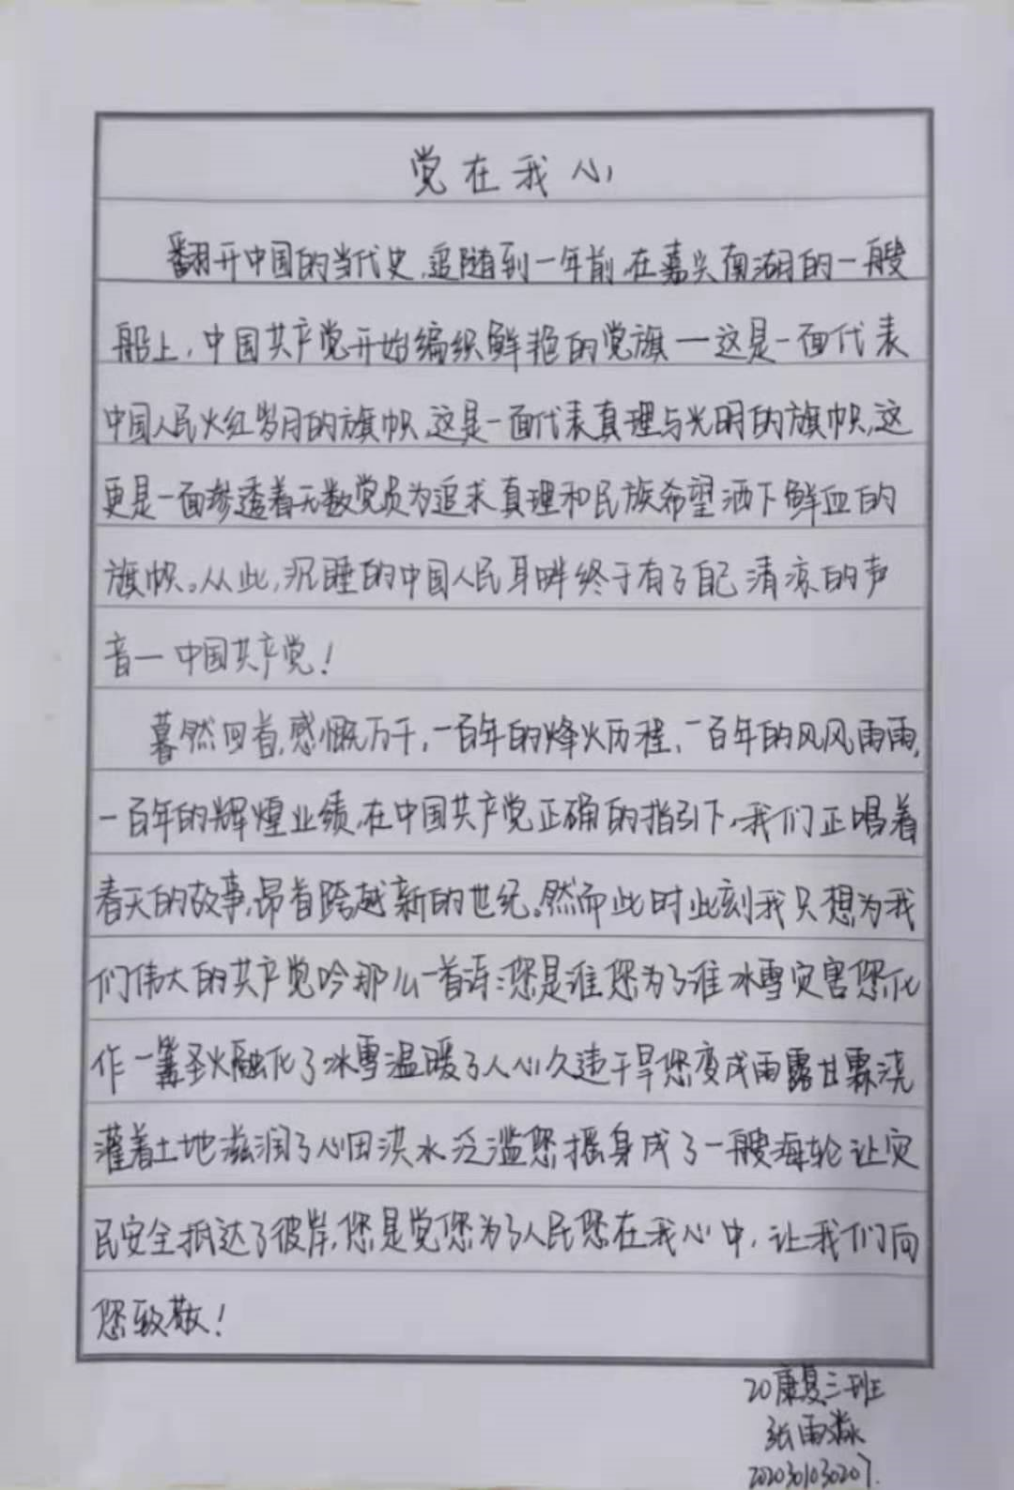 党在我心
翻开中国的当代史,追随到一年前,在嘉兴南湖的一艘
船上,中国共产党开始编织鲜艳的党旗一这是一面代表
中国人民火红岁月的旗帜,这是一面代表真理与光明的旗帜,这
更是一面渗透着无数党员为追求真理和民族希望洒下鲜血的
旗帜。从此,沉睡的中国人民耳畔终于有了自己清凉的声
音一中国共产党!
蓦然回首,感慨万千,一百年的烽火历程,一百年的风风雨雨,
一百年的辉煌业绩,在中国共产党正确的指引下,我们正唱着
春天的故事,昂首跨越新的世纪。然而此时此刻我只想为我
们伟大的共产党吟那么一首诗:您是谁您为了谁冰雪灾害您化
作一篝圣火融化了冰雪温暖了人心久违干旱您变成雨露甘霖浇
灌着土地滋润了心田洪水泛滥您摇身成了一艘海轮让灾
民安全抵达了彼岸,您是党您为了人民您在我心中,让我们向
您致敬!
20康复三班
张雨淼
2020301030207.